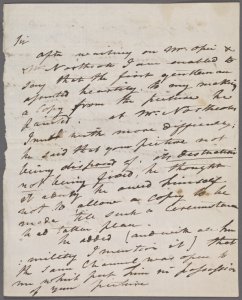 Sir
after waiting on Mr. Opie &
Mr Northcote I am enabled to
say that the first gentleman
assented heartily to my making
a copy from the picture he
painted at Mr. Northcote
I met with more difficulty;
he said that your picture not
being disposed of its destination
not being fixed; he thought
it also he owed himself
not to allow a copy to be
made till such a circumstance
had taken place.
he added (and with all hu
:mility I mention it) that
the same Channel was open to
in possession
of your picture